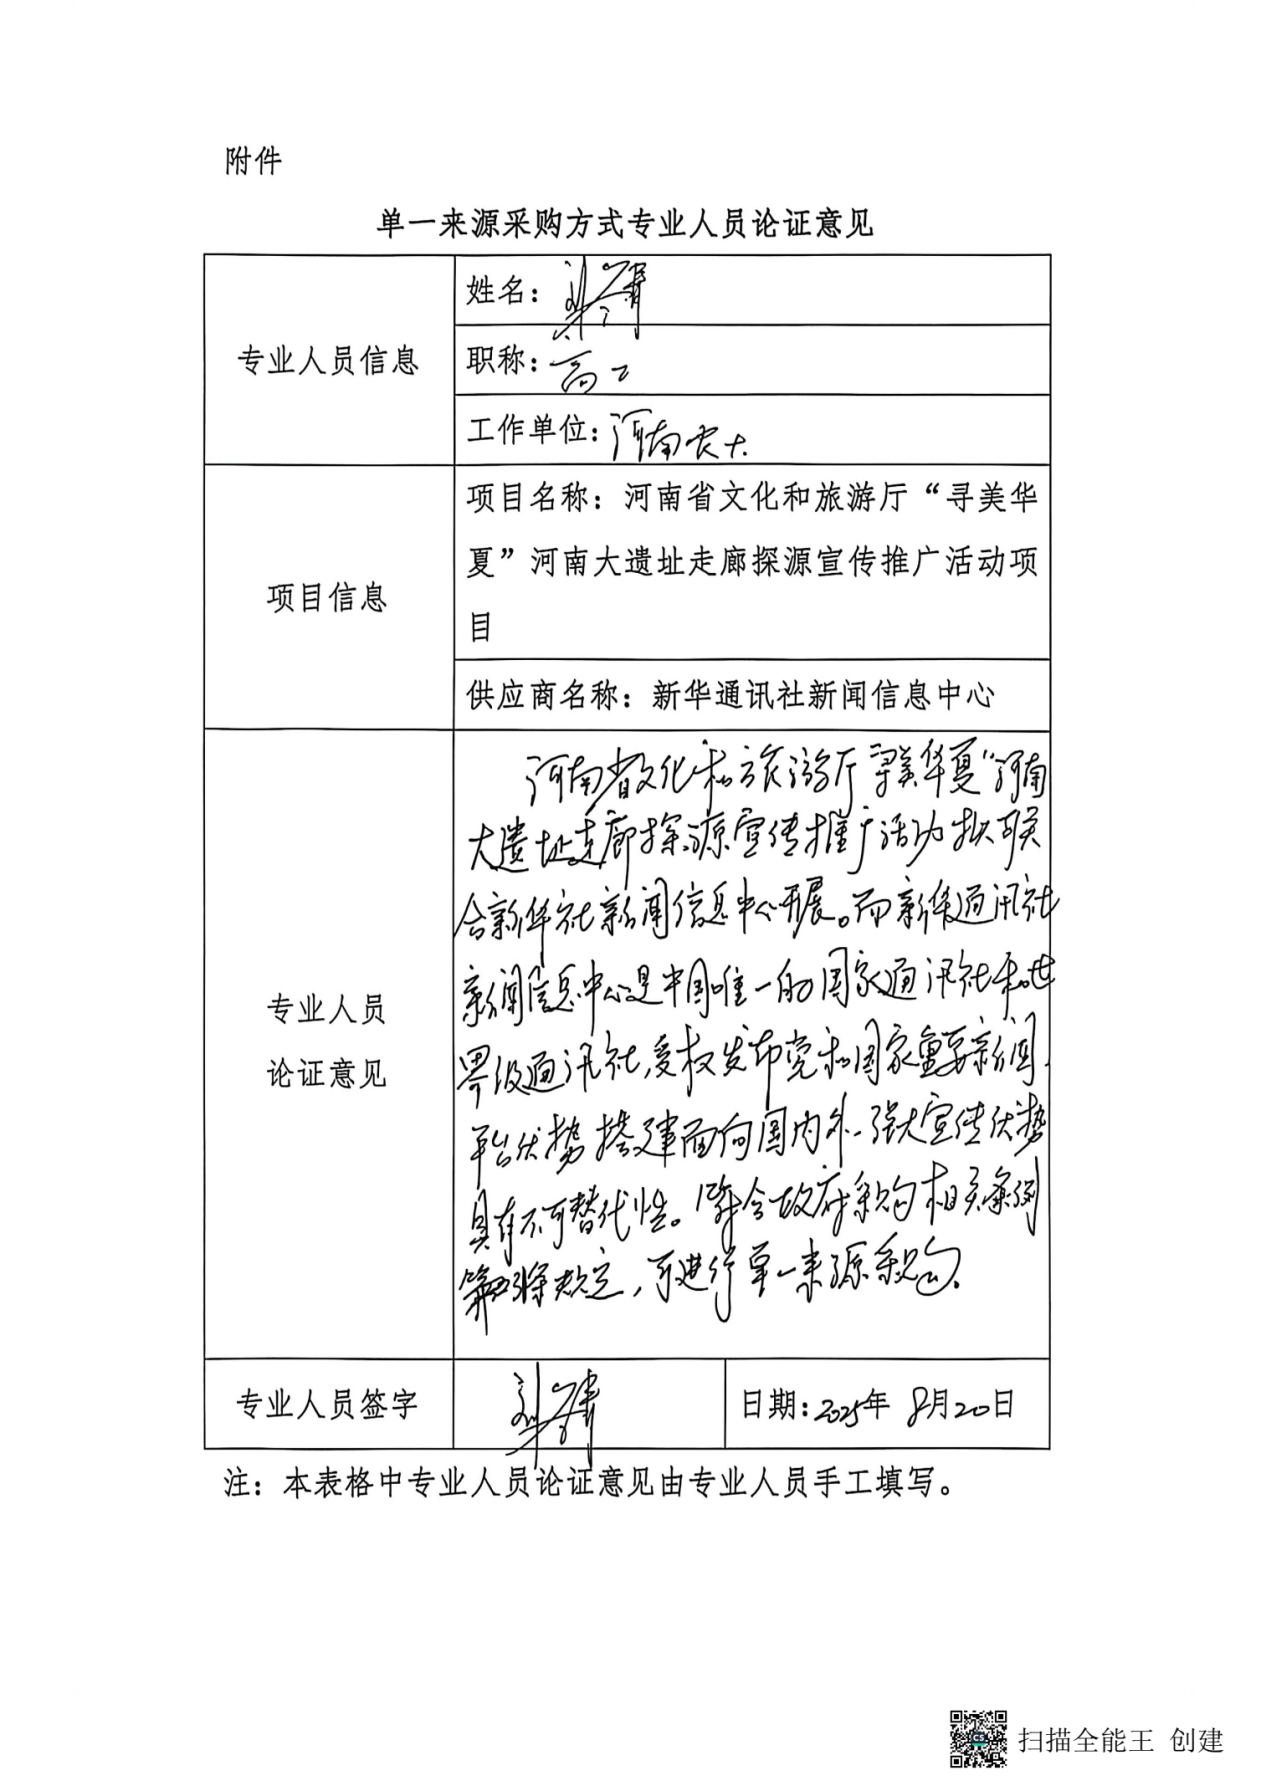 附件
单一来源采购方式专业人员论证意见
专业人员信息
姓名：
职称：高工
工作单位：河南农大
项目信息
项目名称：河南省文化和旅游厅“寻美华
夏”河南大遗址走廊探源宣传推广活动项
目
供应商名称：新华通讯社新闻信息中心
专业人员
论证意见
河南省文化和旅游厅“寻美华夏”河南
大遗址走廊探源宣传推广活动拟联
合新华社新闻信息中心开展。而新华通讯社
新闻信息中心是中国唯一的国家通讯社和世
界级通讯社，受权发布党和国家重要新闻、
平台优势搭建面向国内外、强大宣传优势
具有不可替代性。符合政府采购相关条例
规定，可进行单一来源采购。
专业人员签字
日期：2025年 8月20日
注：本表格中专业人员论证意见由专业人员手工填写。
扫描全能王 创建